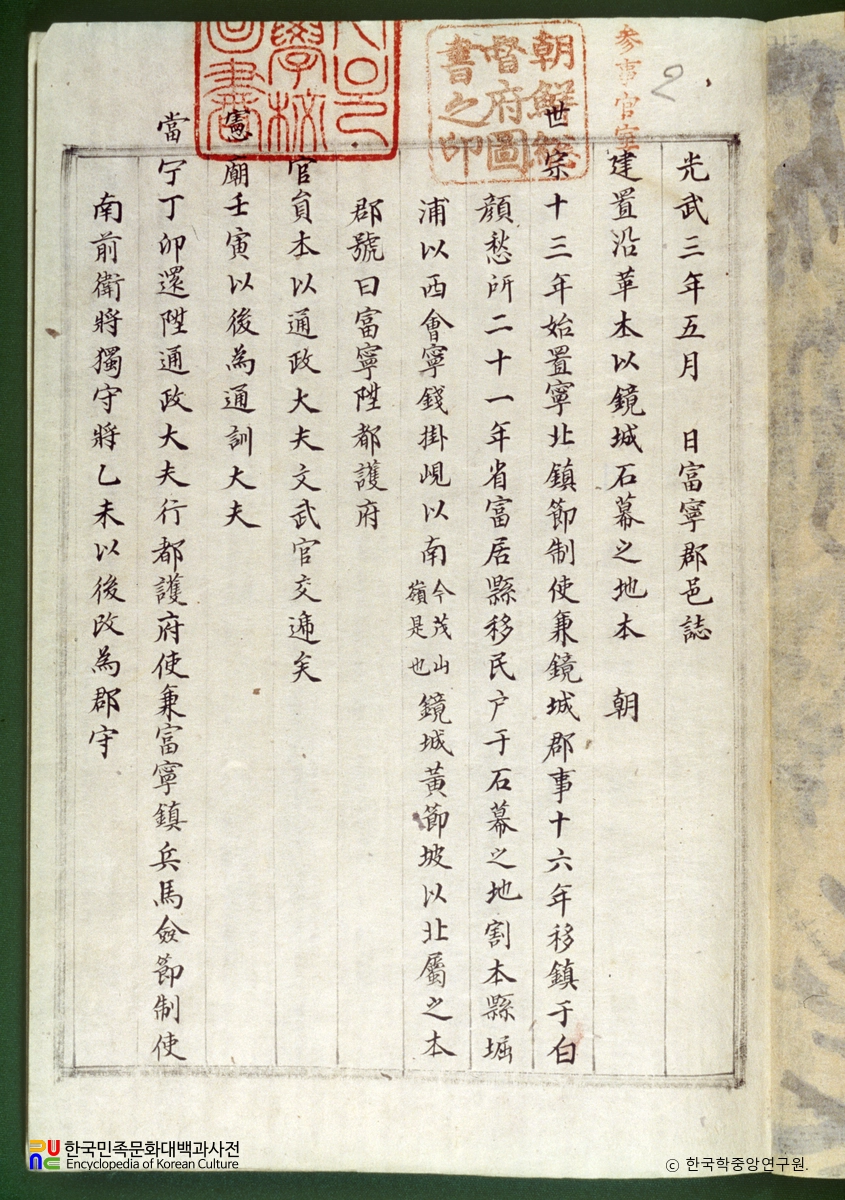 光武三年五月 日富寧郡邑誌
建置沿革本以鏡城石幕之地本 朝
世宗十三年始置寧北鎮節制使兼鏡城郡事十六年移鎮于白
顔愁所二十一年省富居縣移民户于石幕之地割本縣堀
浦以西會寧錢掛峴以南今茂山嶺是也鏡城黃節坡以北屬之本
郡號曰富寧陞都護府
官員本以通政大夫文武官交遞矣
憲廟壬寅以後為通訓大夫
當宁丁卯還陞通政大夫行都護府使兼富寧鎮兵馬僉節制使
南前衛將獨守將乙未以後改為郡守
參事官室
朝鮮總督府圖書之印
學校
圖書
2
한국민족문화대백과사전
Encyclopedia of Korean Culture
ⓒ 한국학중앙연구원.